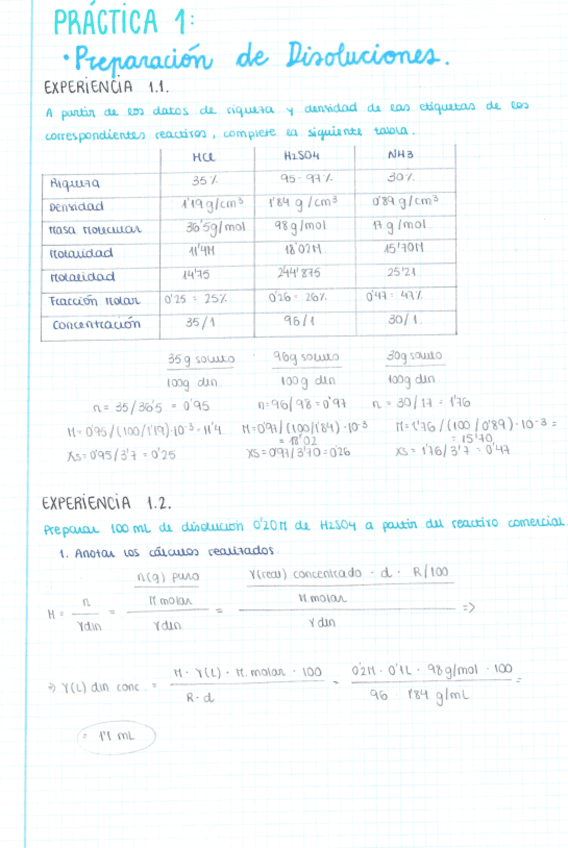 PRÁCTICA 1:
• Preparación de Disoluciones.
EXPERIENCIA 1.1.
A partir de los datos de riqueza y densidad de las etiquetas de los
correspondientes reactivos, complete la siguiente tabla.
HCl H2SO4 NH3
Riqueza 35% 95-97% 30%
Densidad 1'19 g/cm³ 1'84 g/cm³ 0'89 g/cm³
Masa Molecular 36'5g/mol 98g/mol 17 g/mol
Molaridad 11'4M 18'02M 15'70M
Molalidad 14'75 244'875 25'21
Fracción Molar 0'25 = 25% 0'26 = 26% 0'47 = 47%
Concentración 35/1 96/1 30/1
35g soluto 96g soluto 30g soluto
100g din 100g din 100g din
n = 35/36'5 = 0'95 n = 96/98 = 0'97 n = 30/17 = 1'76
M = 0'95/(100/1'19)·10-3 = 11'4 M = 0'97/(100/1'84)·10-3 M = 1'76/(100/0'89)·10-3 =
= 18'02 = 15'70
Xs = 0'95/3'7 = 0'25 Xs = 0'97/3'70 = 0'26 Xs = 1'76/3'7 = 0'47
EXPERIENCIA 1.2.
Preparar 100 mL de disolución 0'20M de H2SO4 a partir del reactivo comercial
1. Anotar los cálculos realizados.
n(g) puro V(real) concentrado · d · R/100
M = n = M molar = M molar =>
Vdin Vdin Vdin
=> V(L) din conc. = M · V(L) · M. molar · 100 = 0'2M · 0'1L · 98g/mol · 100 =
R · d 96 1'84 g/mL
= 1'1 mL